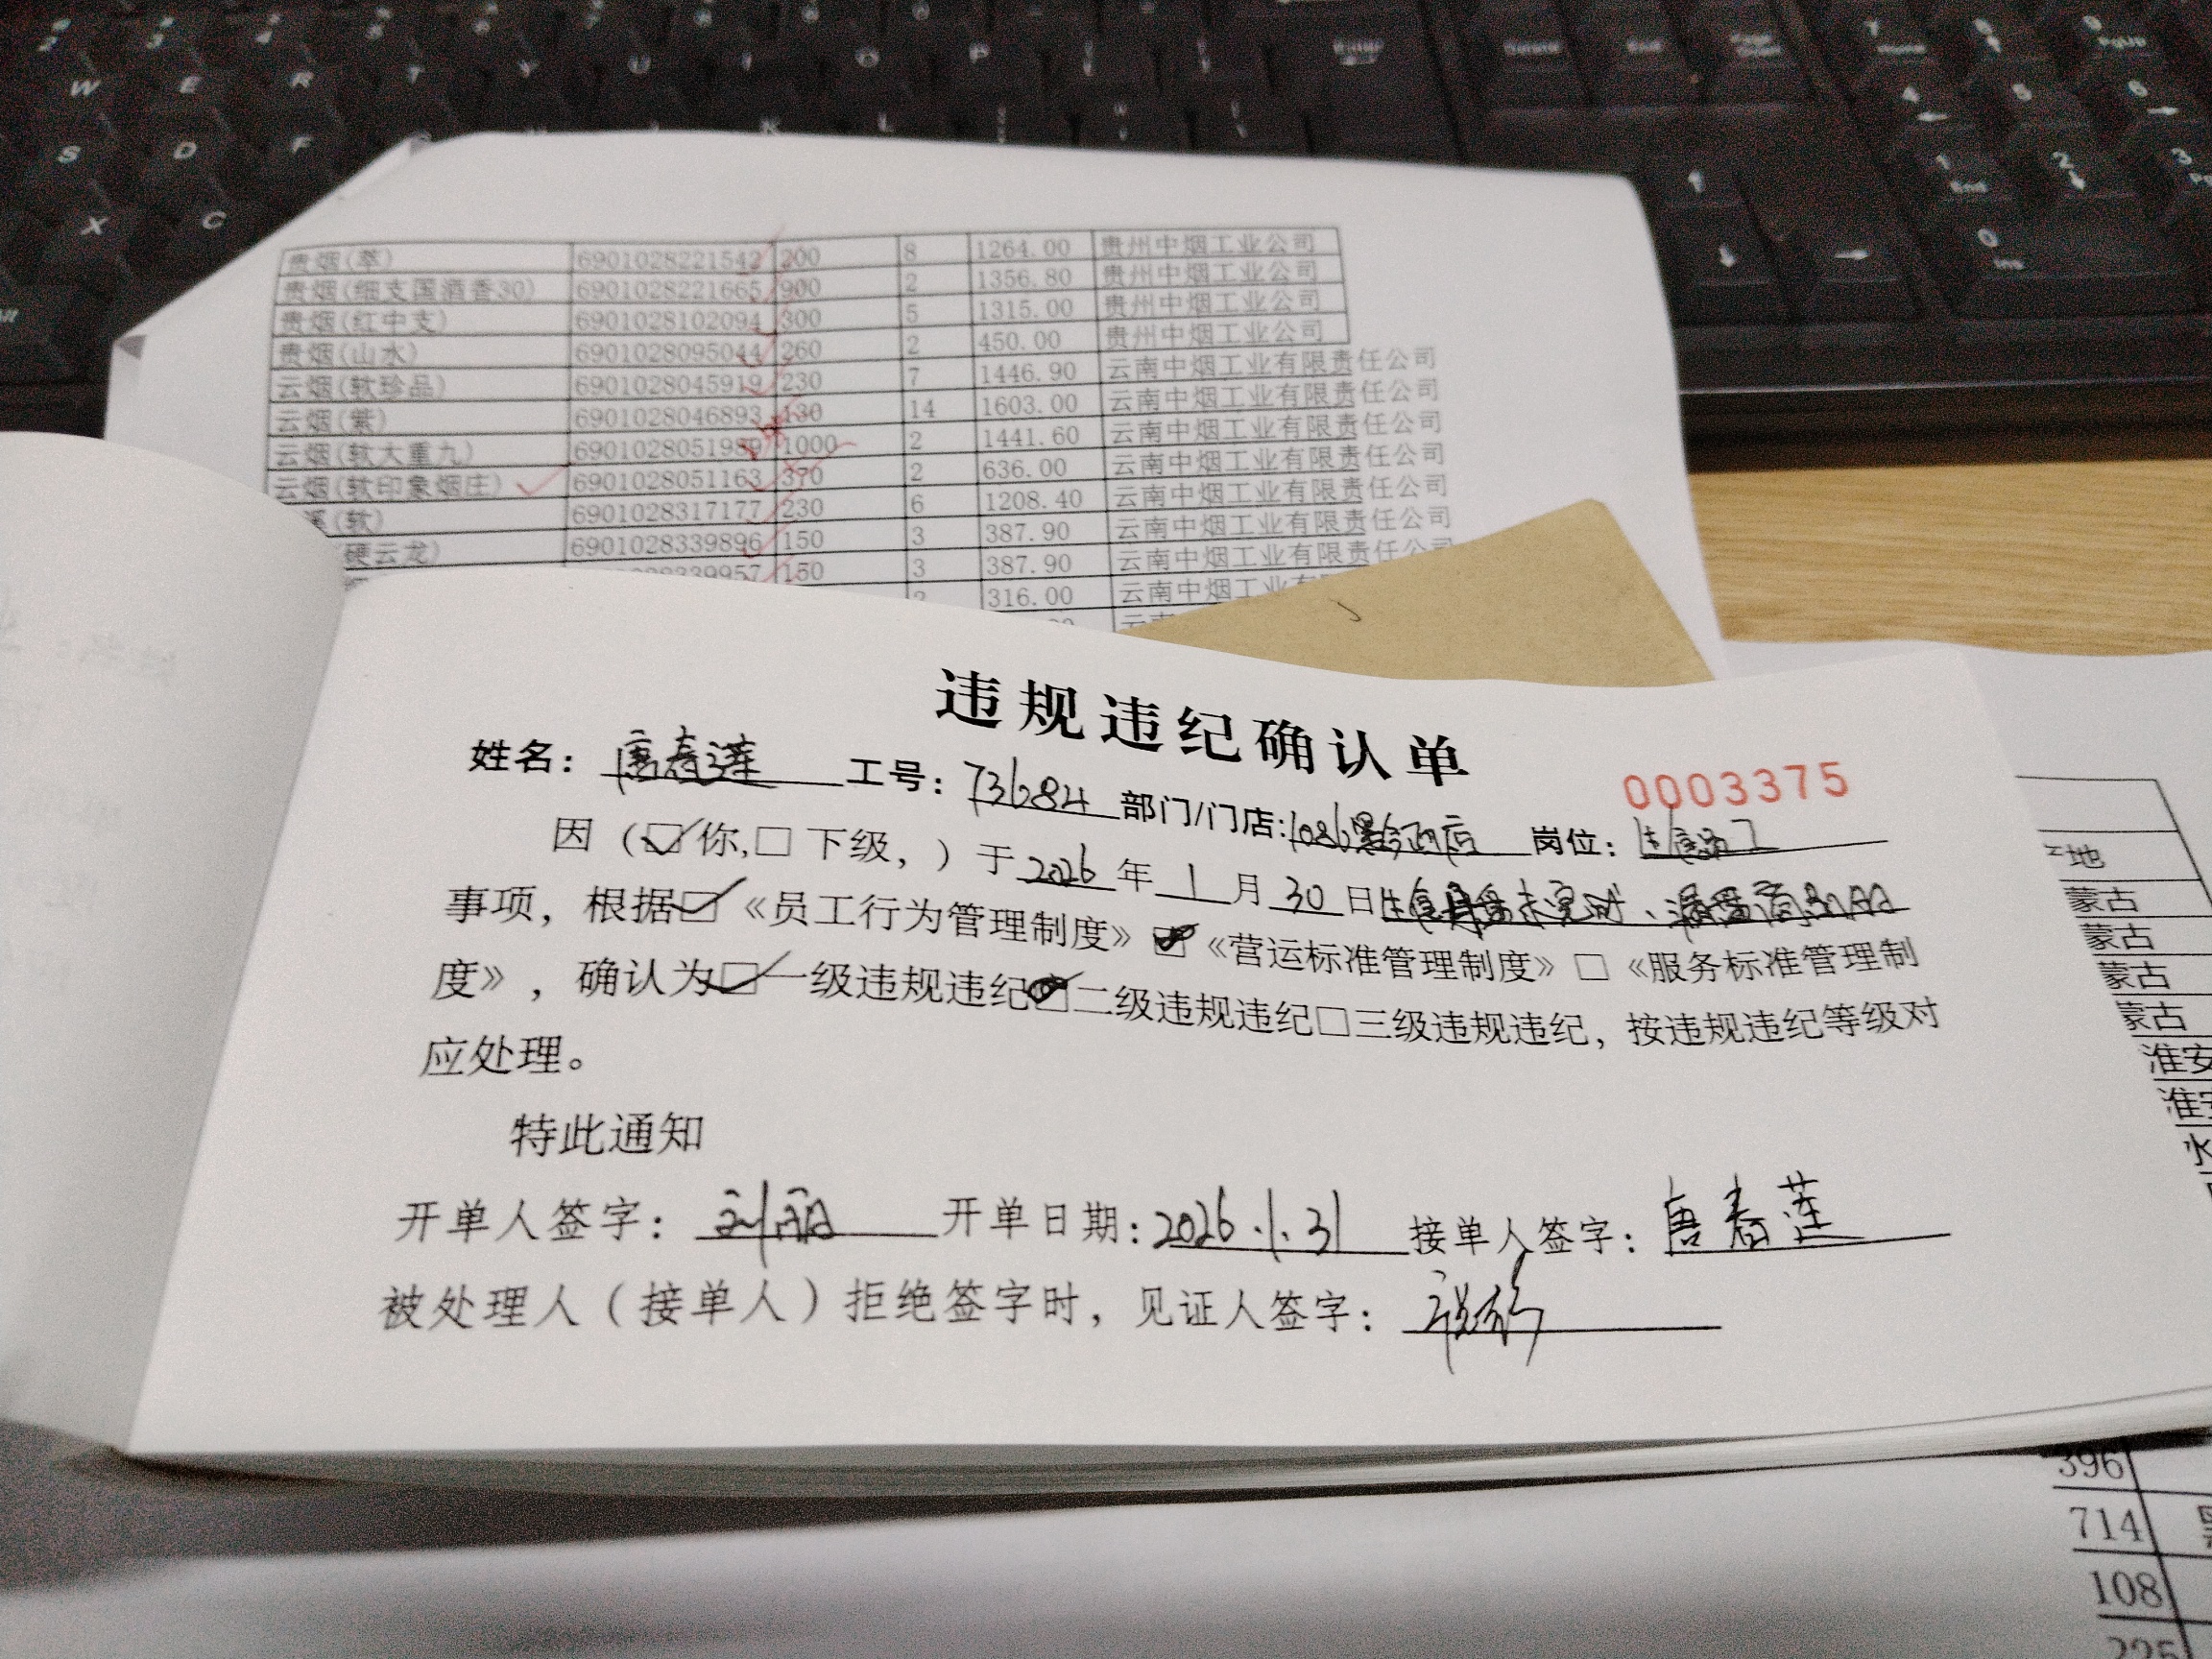 贵烟(萃) 6901028221542 200 8 1264.00 贵州中烟工业公司
贵烟(细支国酒香30) 6901028221665 900 2 1356.80 贵州中烟工业公司
贵烟(红中支) 6901028102094 300 5 1315.00 贵州中烟工业公司
贵烟(山水) 6901028095044 260 2 450.00 贵州中烟工业公司
云烟(软珍品) 6901028045919 230 7 1446.90 云南中烟工业有限责任公司
云烟(紫) 6901028046893 130 14 1603.00 云南中烟工业有限责任公司
云烟(软大重九) 6901028051989 1000 2 1441.60 云南中烟工业有限责任公司
云烟(软印象烟庄) 6901028051163 370 2 636.00 云南中烟工业有限责任公司
溪(软) 6901028317177 230 6 1208.40 云南中烟工业有限责任公司
硬云龙) 6901028339896 150 3 387.90 云南中烟工业有限责任公司
339957 150 3 387.90 云南中烟工业有限责任公司
316.00 云南中烟工业
违规违纪确认单
0003375
姓名：唐春莲 工号：736284 部门/门店:1086 店 岗位：
因（☑你,□下级，）于2026年1月30日
事项，根据☑《员工行为管理制度》 《营运标准管理制度》□《服务标准管理制
度》，确认为☑一级违规违纪 二级违规违纪□三级违规违纪，按违规违纪等级对
应处理。
特此通知
开单人签字：刘丽 开单日期：2026.1.31 接单人签字：唐春莲
被处理人（接单人）拒绝签字时，见证人签字：
地
蒙古
蒙古
蒙古
蒙古
淮安
淮安
396
714
108
225
W E R T Y U I O P
S D F
X C